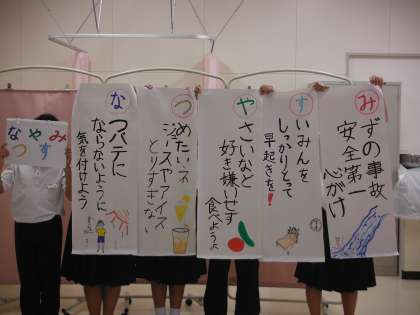 なやみ
つす
な
つバテに
ならないように
気を付けよう
つ
めたいネ
ジュースやアイス
とりすぎない
や
さいなど
好き嫌いせず
食べようよ
す
いみんを
しっかりとって
早起きを!
み
ずの事故
安全第一
心がけ